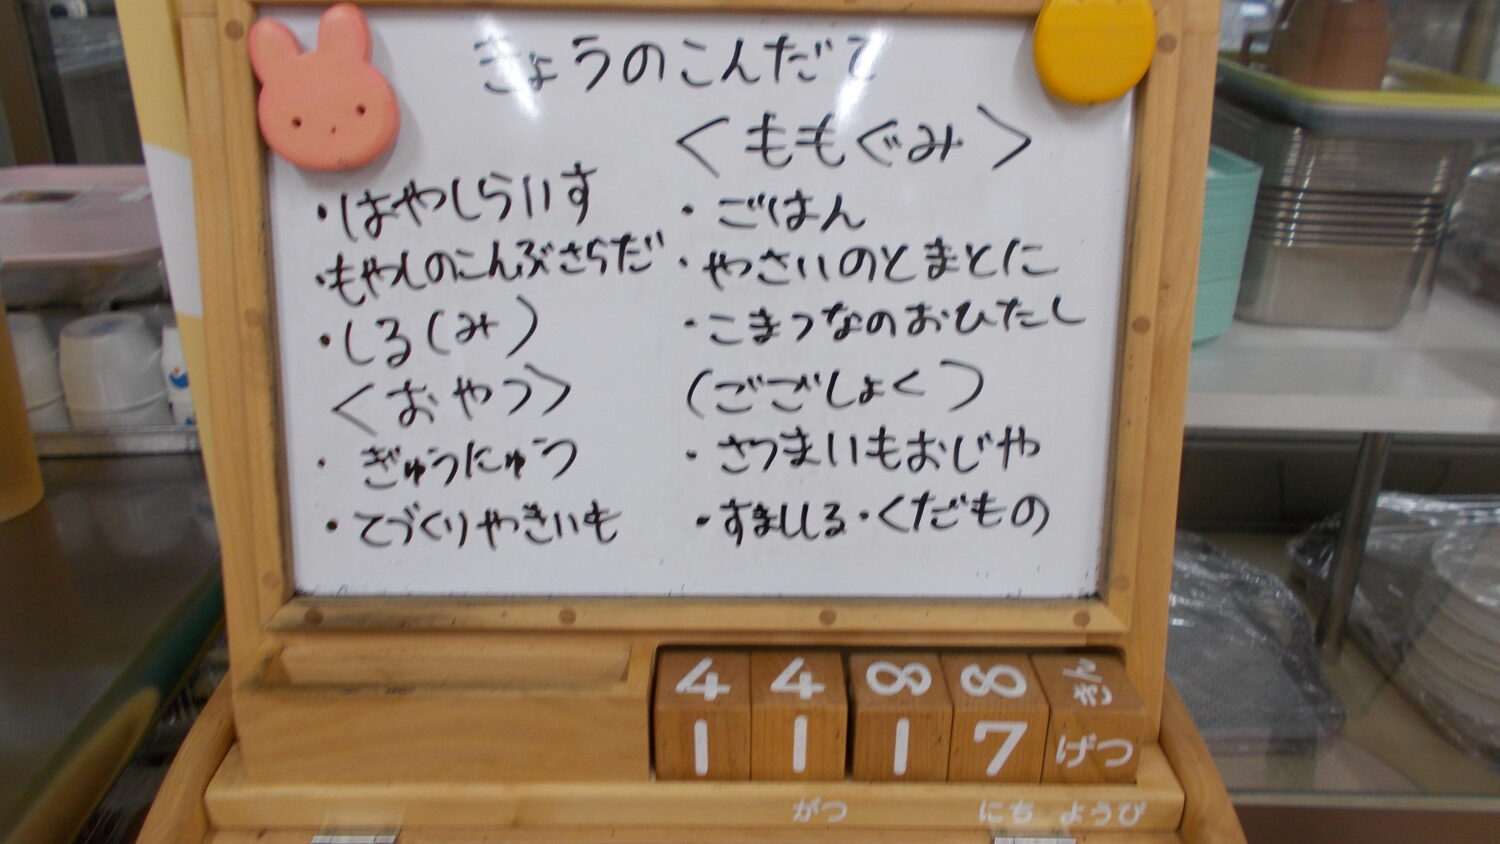 きょうのこんだて
・はやしらいす
・もやしのこんぶさらだ
・しる(み)
<おやつ>
・ぎゅうにゅう
・てづくりやきいも
<ももぐみ>
・ごはん
・やさいのとまとに
・こまつなのおひたし
(ごごしょく)
・さつまいもおじや
・すましじる・くだもの
4 4 8 8 きん
1 1 1 7 げつ
がつ にち ようび